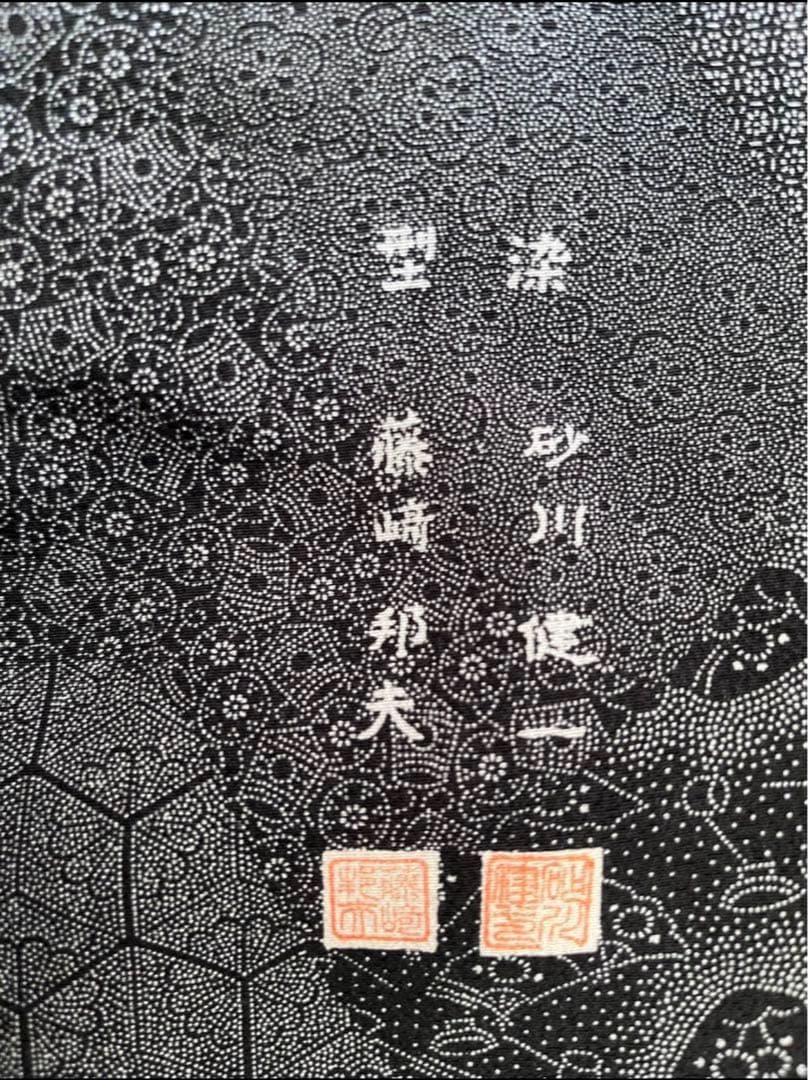 染 砂川健一
型 藤﨑邦夫
砂川健一
藤崎邦夫